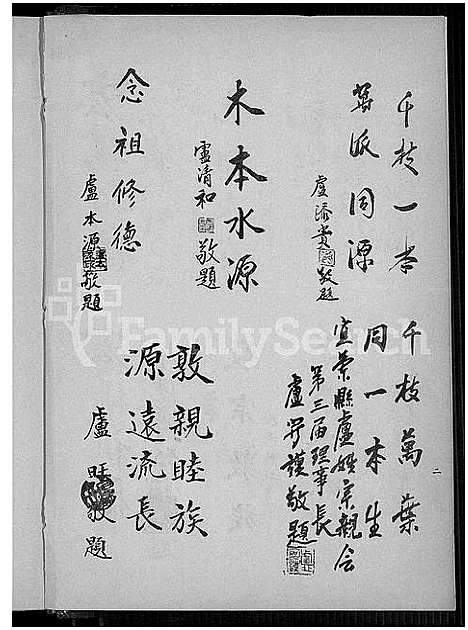 千枝一本
萬派同源
盧添貴敬題
木本水源
盧清和敬題
念祖修德
盧本源敬題
千枝萬葉
同一本生
宜蘭縣盧姓宗親会
第三届理事長
盧 謨敬題
敦親睦族
源遠流長
盧旺敬題
二
FamilySearch